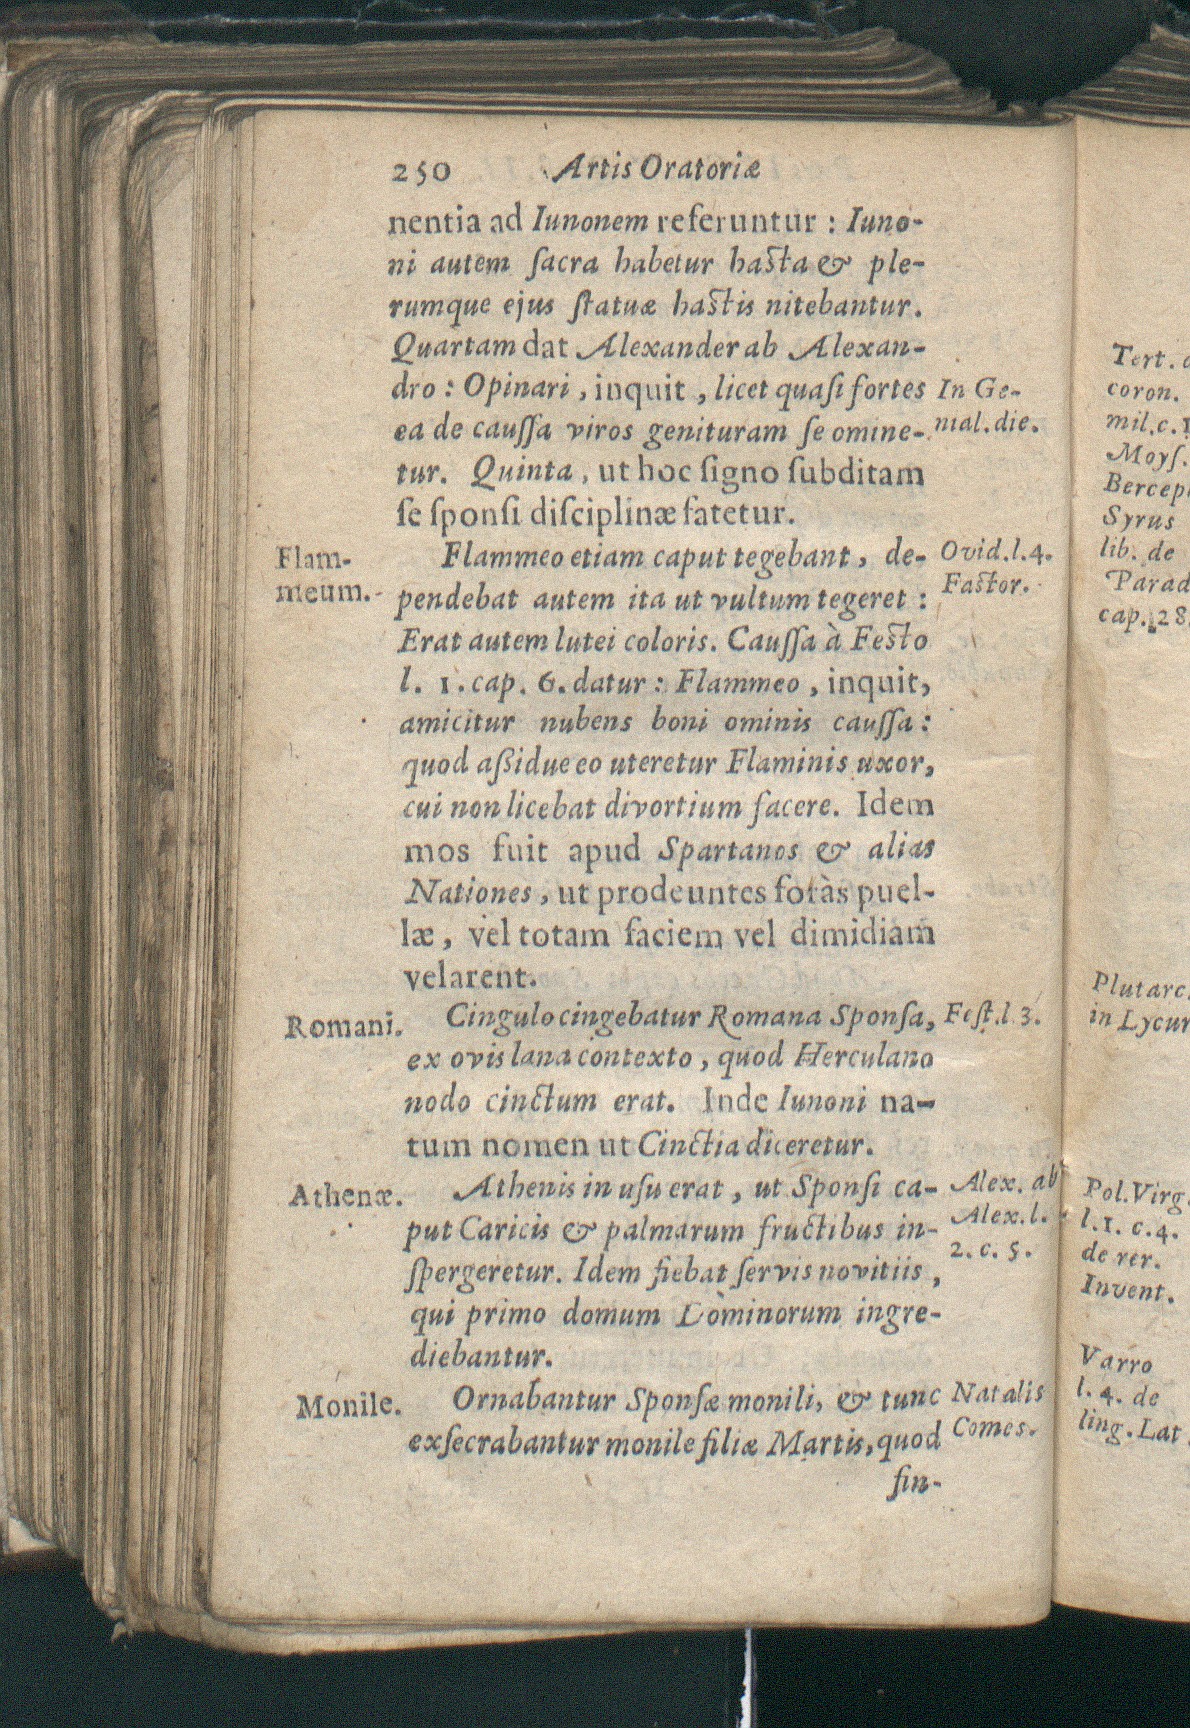 250 Artis Oratoriæ
nentia ad Iunonem referuntur : Iuno-
ni autem ſacra habetur haſta & ple-
rumque ejus ſtatuæ haſtis nitebantur.
Quartam dat Alexander ab Alexan-
dro : Opinari , inquit , licet quaſi fortes
ea de cauſſa viros genituram ſe omine-
tur. Quinta , ut hoc ſigno ſubditam
ſe ſponſi diſciplinæ fatetur.
In Ge-
nial. die.
Flam-
meum.
Flammeo etiam caput tegebant , de-
pendebat autem ita ut vultum tegeret :
Erat autem lutei coloris. Cauſſa à Feſto
l. 1. cap. 6. datur : Flammeo , inquit,
amicitur nubens boni ominis cauſſa :
quod aßidue eo uteretur Flaminis uxor,
cui non licebat divortium facere. Idem
mos fuit apud Spartanos & alias
Nationes , ut prodeuntes foràs puel-
læ , vel totam faciem vel dimidiam
velarent.
Ovid. l. 4.
Faſtor.
Romani.
Cingulo cingebatur Romana Sponſa,
ex ovis lana contexto , quod Herculano
nodo cinctum erat. Inde Iunoni na-
tum nomen ut Cinctia diceretur.
Feſt. l. 3.
Athenæ.
Athenis in uſu erat , ut Sponſi ca-
put Caricis & palmarum fructibus in-
ſpergeretur. Idem fiebat ſervis novitiis ,
qui primo domum Dominorum ingre-
diebantur.
Alex. ab
Alex. l.
2. c. 5.
Monile.
Ornabantur Sponſæ monili, & tunc
exſecrabantur monile filiæ Martis, quod
Natalis
Comes.
fin-
Tert.
coron.
mil. c.
Moyſ.
Syrus
lib. de
cap. 28.
Plutarc.
in Lycur
Pol. Virg.
l. 1. c. 4.
de rer.
Invent.
Varro
l. 4. de
ling. Lat.